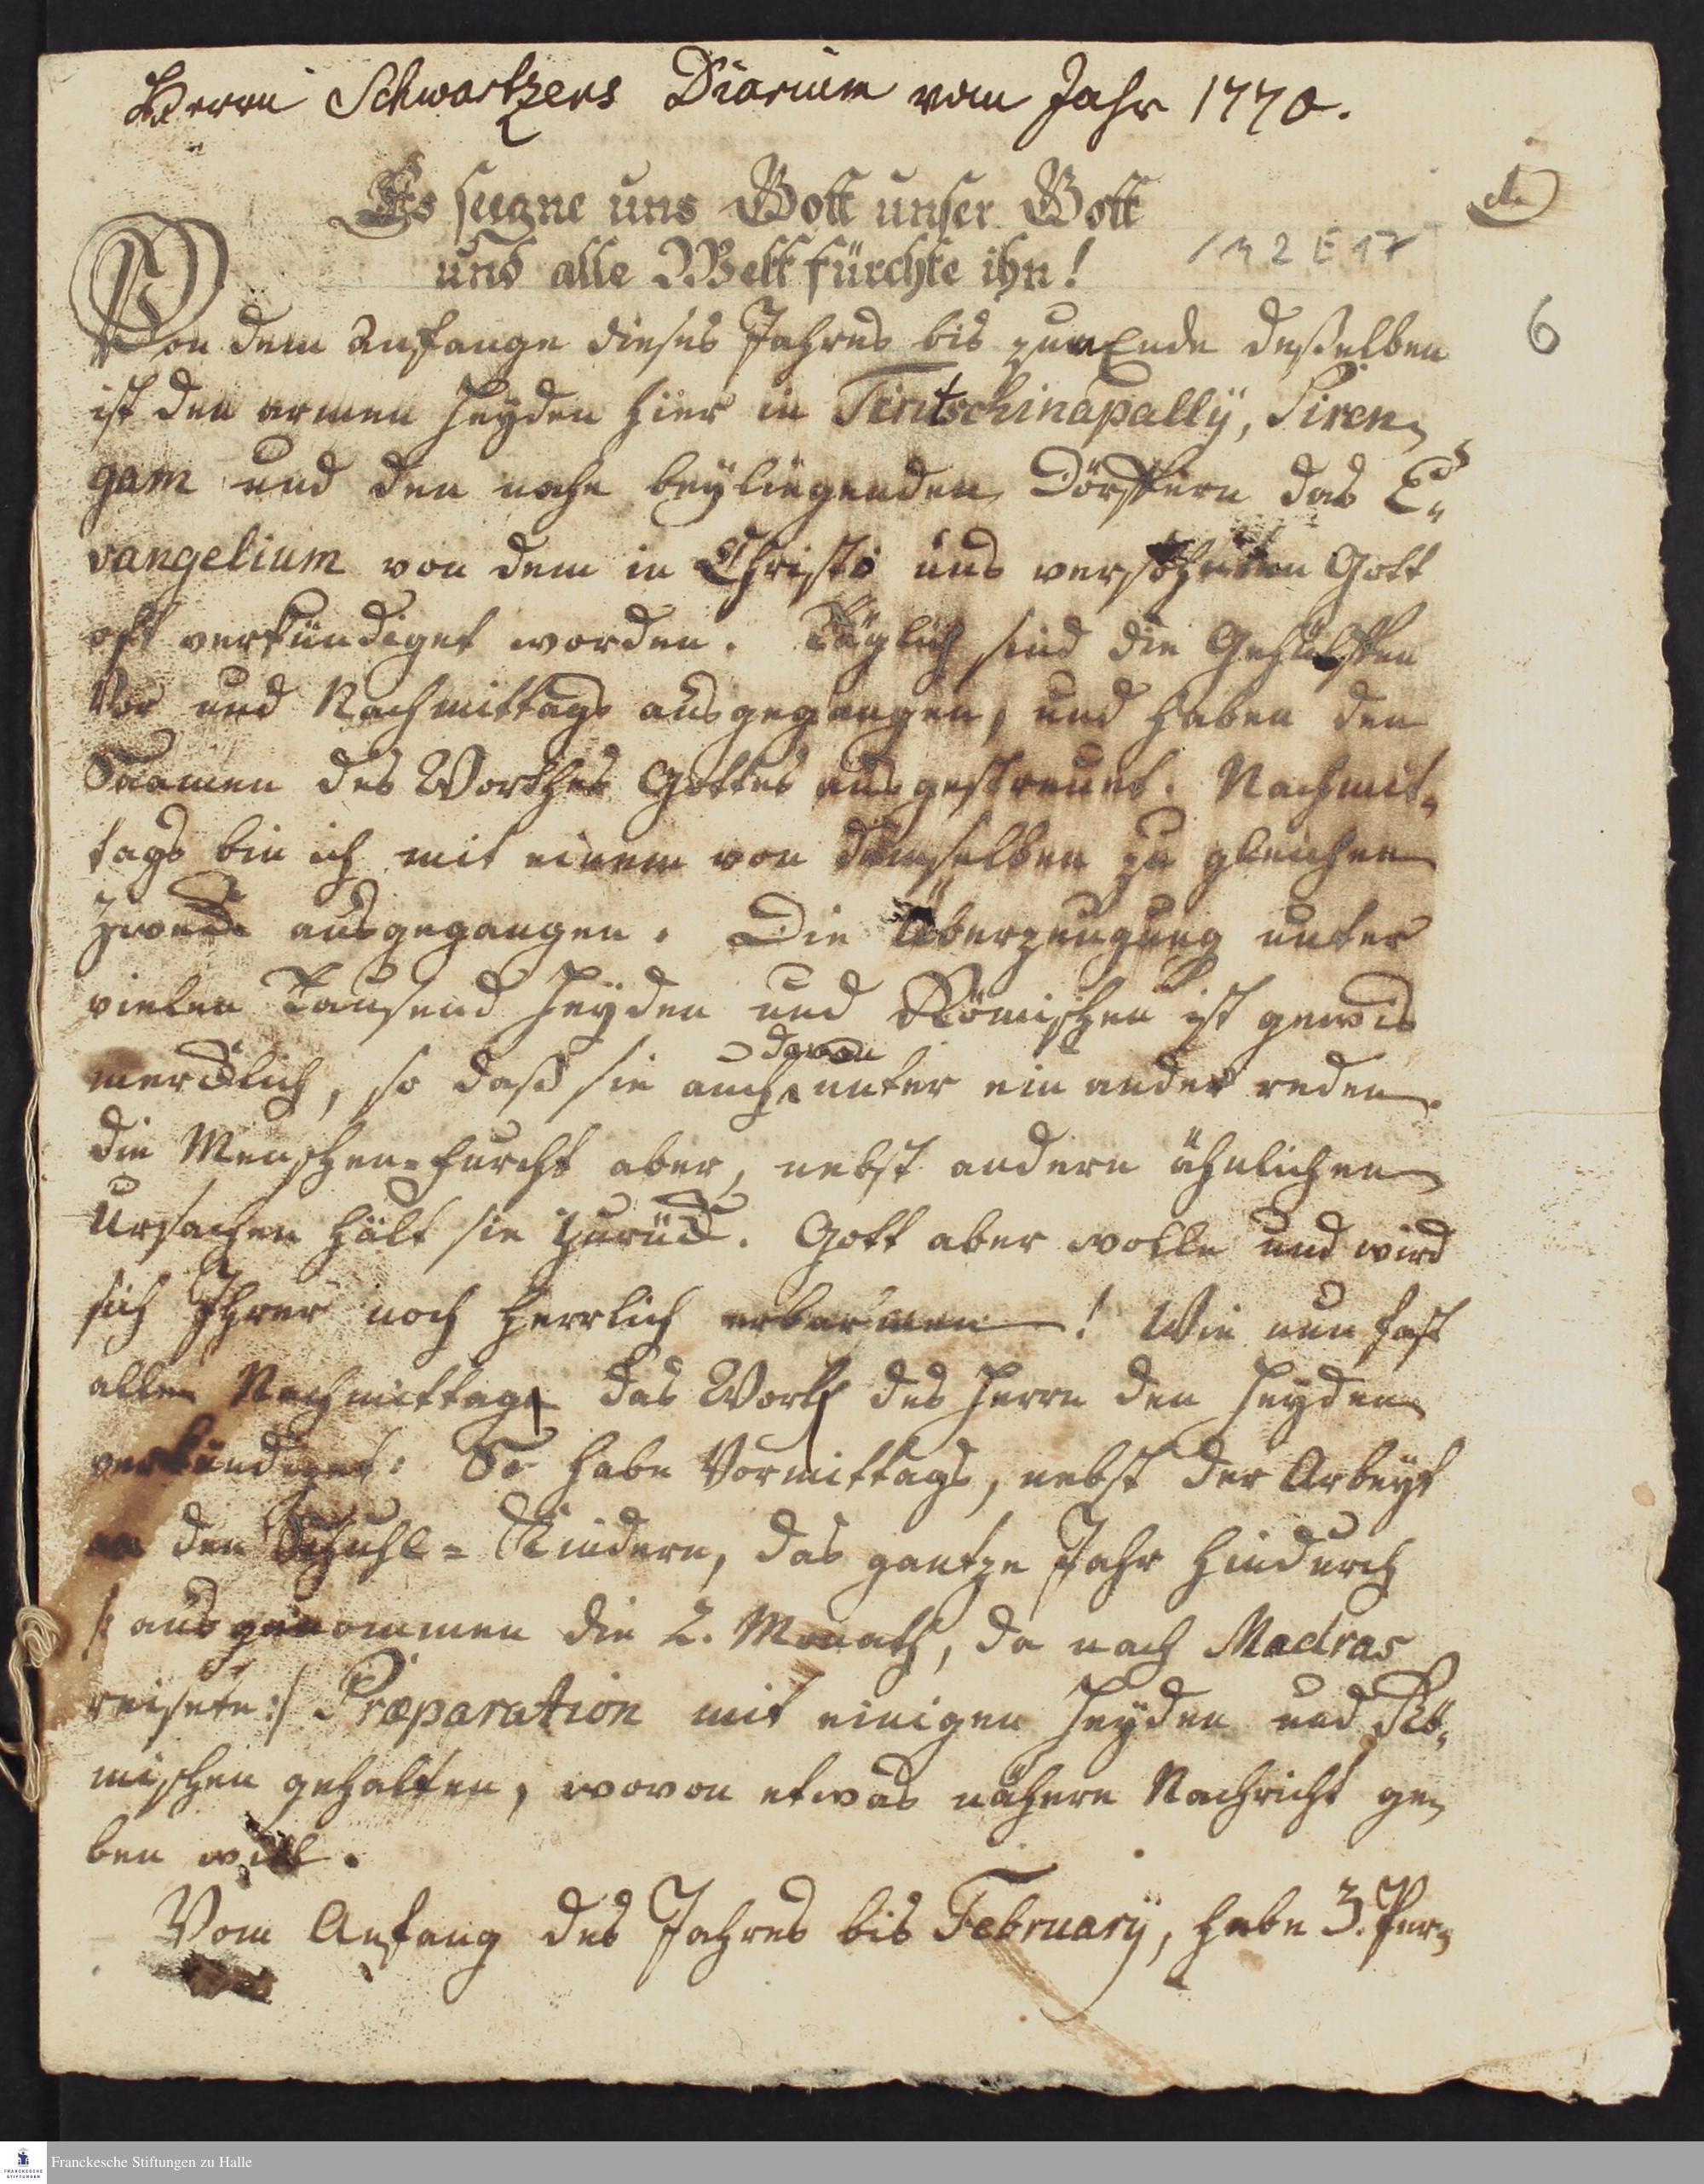 Herrn Schwartzens Diarium vom Jahr 1770.
Es seegne uns Gott unser Gott
und alle Welt fürchte ihn!
1 M 2 E 17
6
Von dem Anfange dieses Jahres bis zum Ende deßelben
ist den armen Heyden hier in Tirutschinapallÿ, Siren¬
gam und den nahe beyliegenden Dörffern das E¬
vangelium von dem in Christo uns versöhnten Gott
oft verkündiget worden. Täglich sind die Gehülffen
Vor und Nachmittags ausgegangen, und haben den
Saamen des Worthes Gottes ausgestreuet. Nachmit¬
tags bin ich mit einem von demselben zu gleichen
Zweck ausgegangen. Die Überzeugung unter
vielen Tausend Heyden und Römischen ist gewis
davon
mercklich, so daß sie auch unter ein ander reden.
die Menschen=furcht aber, nebst andern ähnlichen
Ursachen hält sie zurück. Gott aber wolle und wird
sich Ihrer noch herrlich erbarmen! Wie nun fast
alle Nachmittags das Worth des Herrn den Heyden
verkündiget: So habe Vormittags, nebst der Arbeyt
an den Schuhl=Kindern, das gantze Jahr hindurch
/: ausgenommen die 2. Monath, da nach Madras
reisete :/ Præparation mit einigen Heyden und Rö¬
mischen gehalten, wovon etwas nähere Nachricht ge¬
ben will.
Vom Anfang des Jahres bis Februarÿ, habe 3. Per¬
Franckesche Stiftungen zu Halle